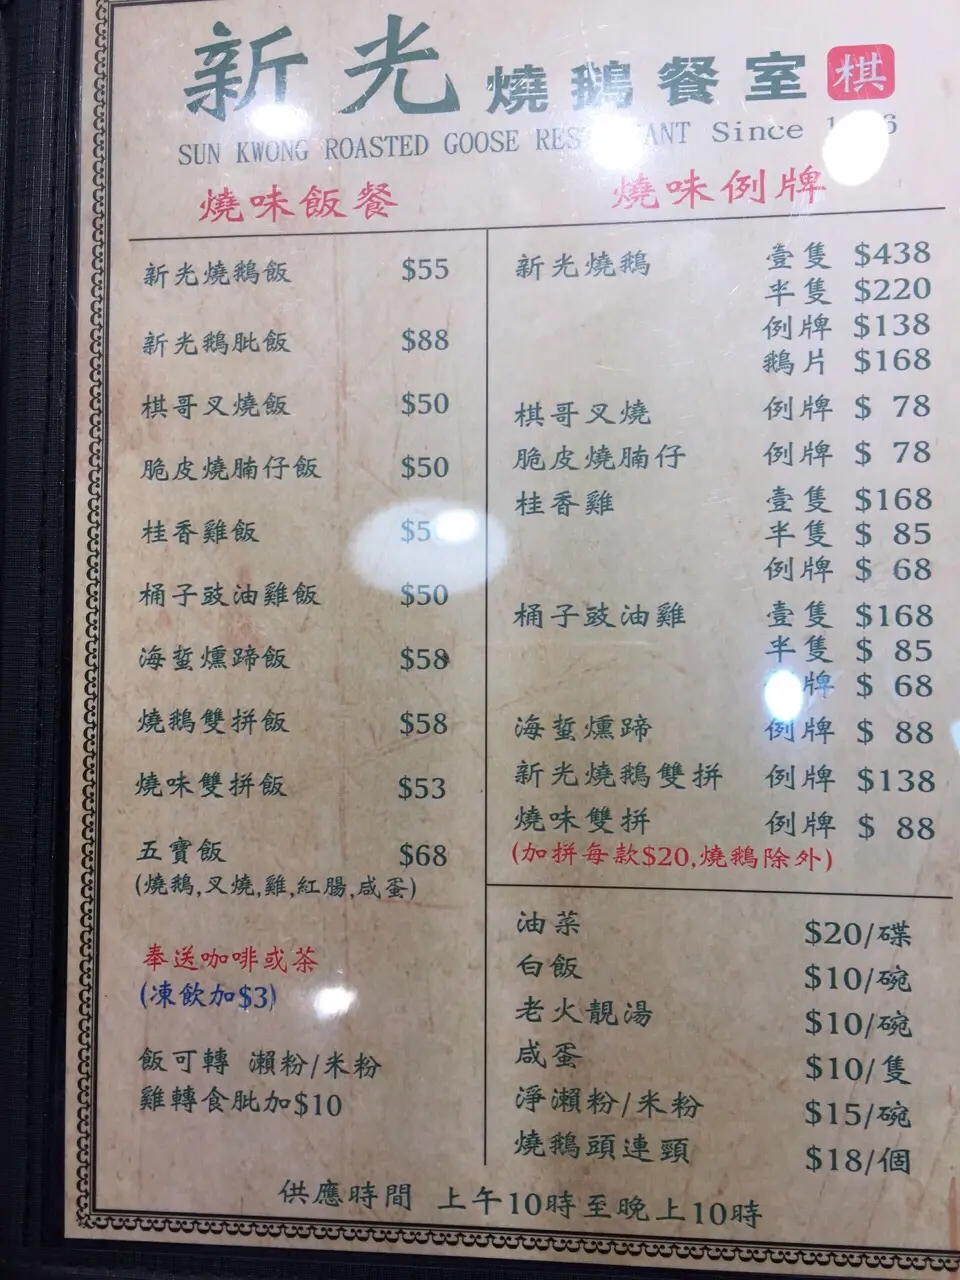 新光 燒鵝餐室 棋
SUN KWONG ROASTED GOOSE RESTAURANT Since
燒味飯餐
新光燒鵝飯 $55
新光鵝髀飯 $88
棋哥叉燒飯 $50
脆皮燒腩仔飯 $50
桂香雞飯
桶子豉油雞飯 $50
海蜇燻蹄飯 $58
燒鵝雙拼飯 $58
燒味雙拼飯 $53
五寶飯 $68
(燒鵝,叉燒,雞,紅腸,咸蛋)
奉送咖啡或茶
(凍飲加$3)
飯可轉 瀨粉/米粉
雞轉食肶加$10
燒味例牌
新光燒鵝 壹隻 $438
半隻 $220
例牌 $138
鵝片 $168
棋哥叉燒 例牌 $ 78
脆皮燒腩仔 例牌 $ 78
桂香雞 壹隻 $168
半隻 $ 85
例牌 $ 68
桶子豉油雞 壹隻 $168
半隻 $ 85
牌 $ 68
海蜇燻蹄 例牌 $ 88
新光燒鵝雙拼 例牌 $138
燒味雙拼 例牌 $ 88
(加拼每款$20,燒鵝除外)
油菜 $20/碟
白飯 $10/碗
老火靚湯 $10/碗
咸蛋 $10/隻
淨瀨粉/米粉 $15/碗
燒鵝頭連頸 $18/個
供應時間 上午10時至晚上10時